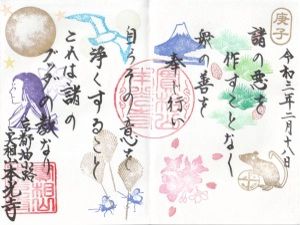 庚子
令和三年二月十八日
諸の悪を
作すことなく
衆の善を
奉じ行い
自らその意を
浄くすること
これは諸の
ブッダの教なり
京都油小路
本光寺